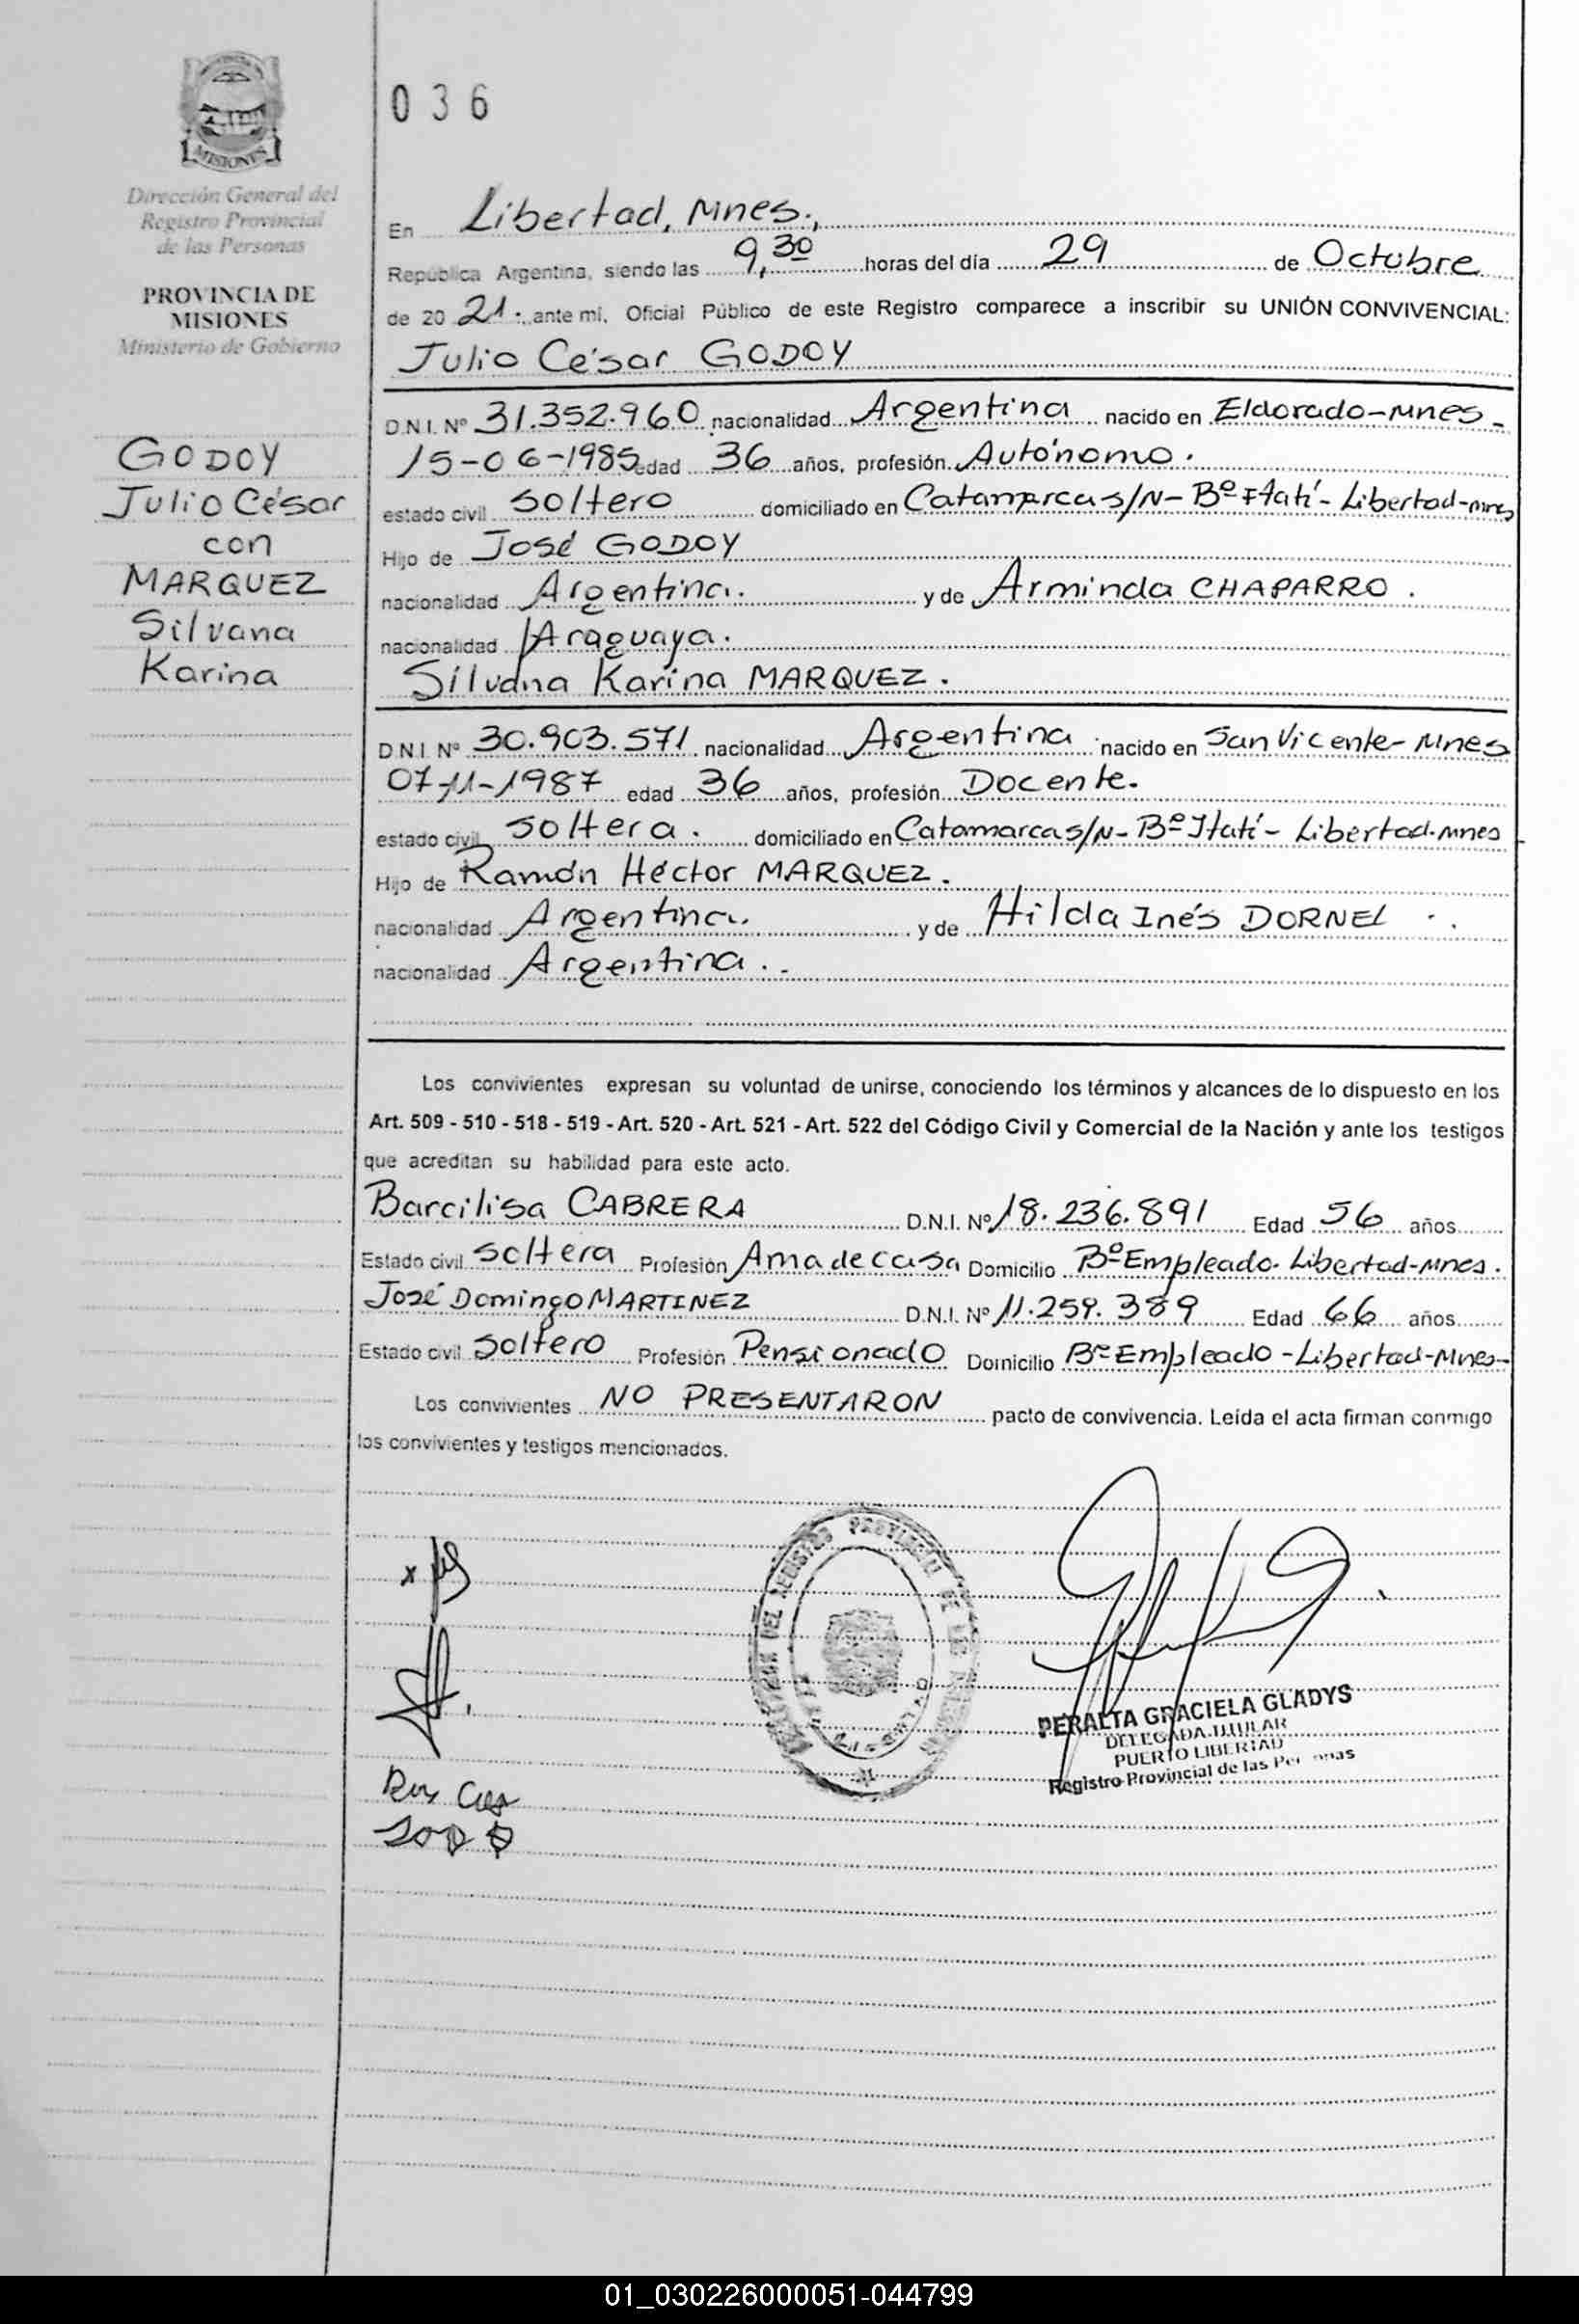 MISIONES
Dirección General del
Registro Provincial
de las Personas
PROVINCIA DE
MISIONES
Ministerio de Gobierno
GODOY
Julio César
con
MARQUEZ
Silvana
Karina
036
En Libertad, Mnes.,
República Argentina, siendo las 9,30 horas del día 29 de Octubre
de 2021. ante mí, Oficial Público de este Registro comparece a inscribir su UNIÓN CONVIVENCIAL:
Julio César GODOY
D.N.I. Nº 31.352.960 nacionalidad Argentina nacido en Eldorado-Mnes-
15-06-1985 edad 36 años, profesión Autónomo.
estado civil soltero domiciliado en Catamarca s/N- Bº Itatí- Libertad-Mnes
Hijo de José GODOY
nacionalidad Argentina. y de Arminda CHAPARRO.
nacionalidad
Silvana Karina MARQUEZ.
D.N.I. Nº 30.903.571 nacionalidad Argentina nacido en San Vicente- Mnes
07-11-1987 edad 36 años, profesión Docente.
estado civil soltera. domiciliado en Catamarca s/N- Bº Itatí- Libertad-Mnes
Hijo de Ramón Héctor MARQUEZ.
nacionalidad Argentina. y de Hilda Inés DORNEL.
nacionalidad Argentina.
Los convivientes expresan su voluntad de unirse, conociendo los términos y alcances de lo dispuesto en los
Art. 509 - 510 - 518 - 519 - Art. 520 - Art. 521 - Art. 522 del Código Civil y Comercial de la Nación y ante los testigos
que acreditan su habilidad para este acto.
Barcilisa CABRERA D.N.I. Nº 18.236.891 Edad 56 años
Estado civil soltera Profesión Ama de casa Domicilio Bº Empleado- Libertad-Mnes.
José Domingo MARTINEZ D.N.I. Nº 11.259.389 Edad 66 años
Estado civil soltero Profesión Pensionado Domicilio Bº Empleado-Libertad-Mnes-
Los convivientes NO PRESENTARON pacto de convivencia. Leída el acta firman conmigo
los convivientes y testigos mencionados.
PERALTA GRACIELA GLADYS
DELEGADA TITULAR
PUERTO LIBERTAD
Registro Provincial de las Personas
01_030226000051-044799